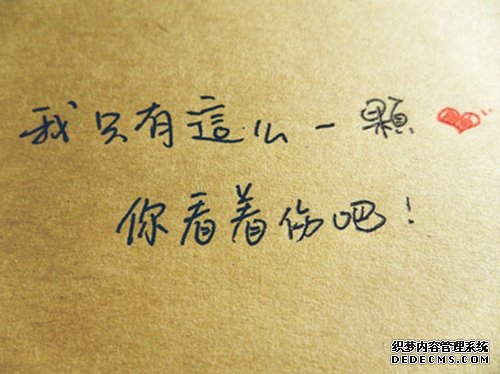 我只有這么一顆❤
你看着伤吧!
织梦内容管理系统
DEDECMS.COM